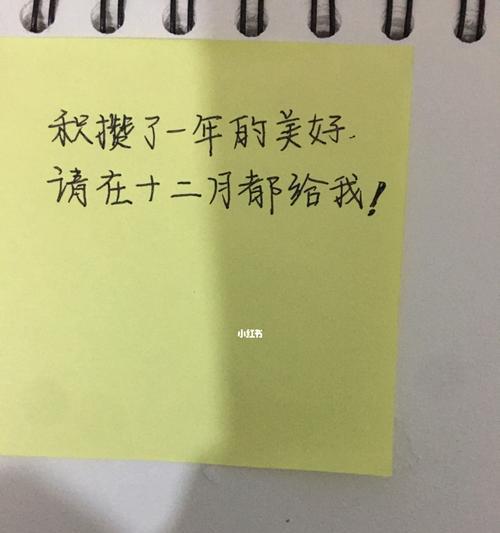 积攒了一年的美好.
请在十二月都给我!
小红书